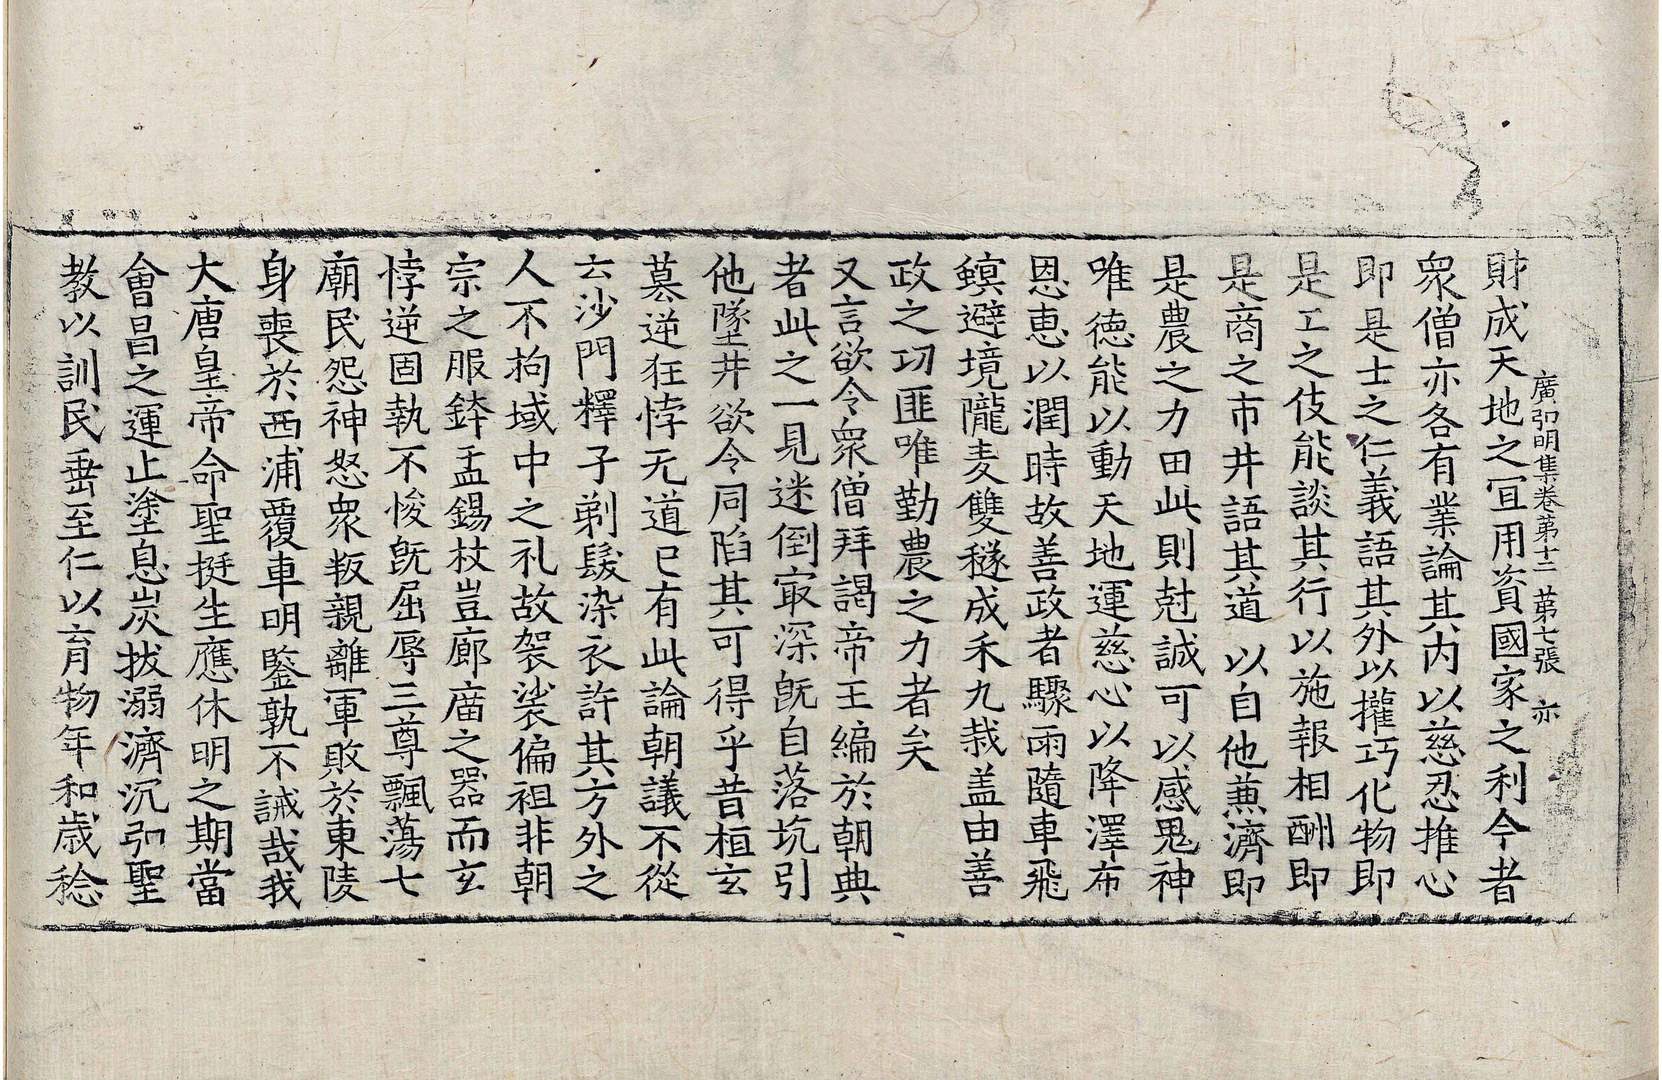 廣弘明集卷苐十二 苐七張 亦
財成天地之冝用資國家之利今者
衆僧亦各有業論其內以慈忍推心
即是士之仁義語其外以攉巧化物即
是工之伎能談其行以施報相酬即
是商之市井語其道以自他兼濟即
是農之力田此則尅誠可以感鬼神
唯德能以動天地運慈心以降澤布
恩恵以潤時故善政者驟雨隨車飛
螟避境隴麦雙穟成禾九栽盖由善
政之功匪唯勤農之力者矣
又言欲令衆僧拜謁帝王編於朝典
者此之一見迷倒㝡深旣自落坑引
他墜井欲令同陷其可得乎昔桓玄
篡逆狂悖无道已有此論朝議不從
云沙門釋子剃髮染衣許其方外之
人不拘域中之礼故袈裟偏袒非朝
宗之服鉢盂錫杖豈廊廟之器而玄
悖逆固執不悛旣屈辱三尊飄蕩七
廟民怨神怒衆叛親離軍敗於東陵
身喪於西浦覆車明鑒孰不誡哉我
大唐皇帝命聖挺生應休明之期當
會昌之運止塗息炭拔溺濟沉弘聖
教以訓民垂至仁以育物年和歳稔